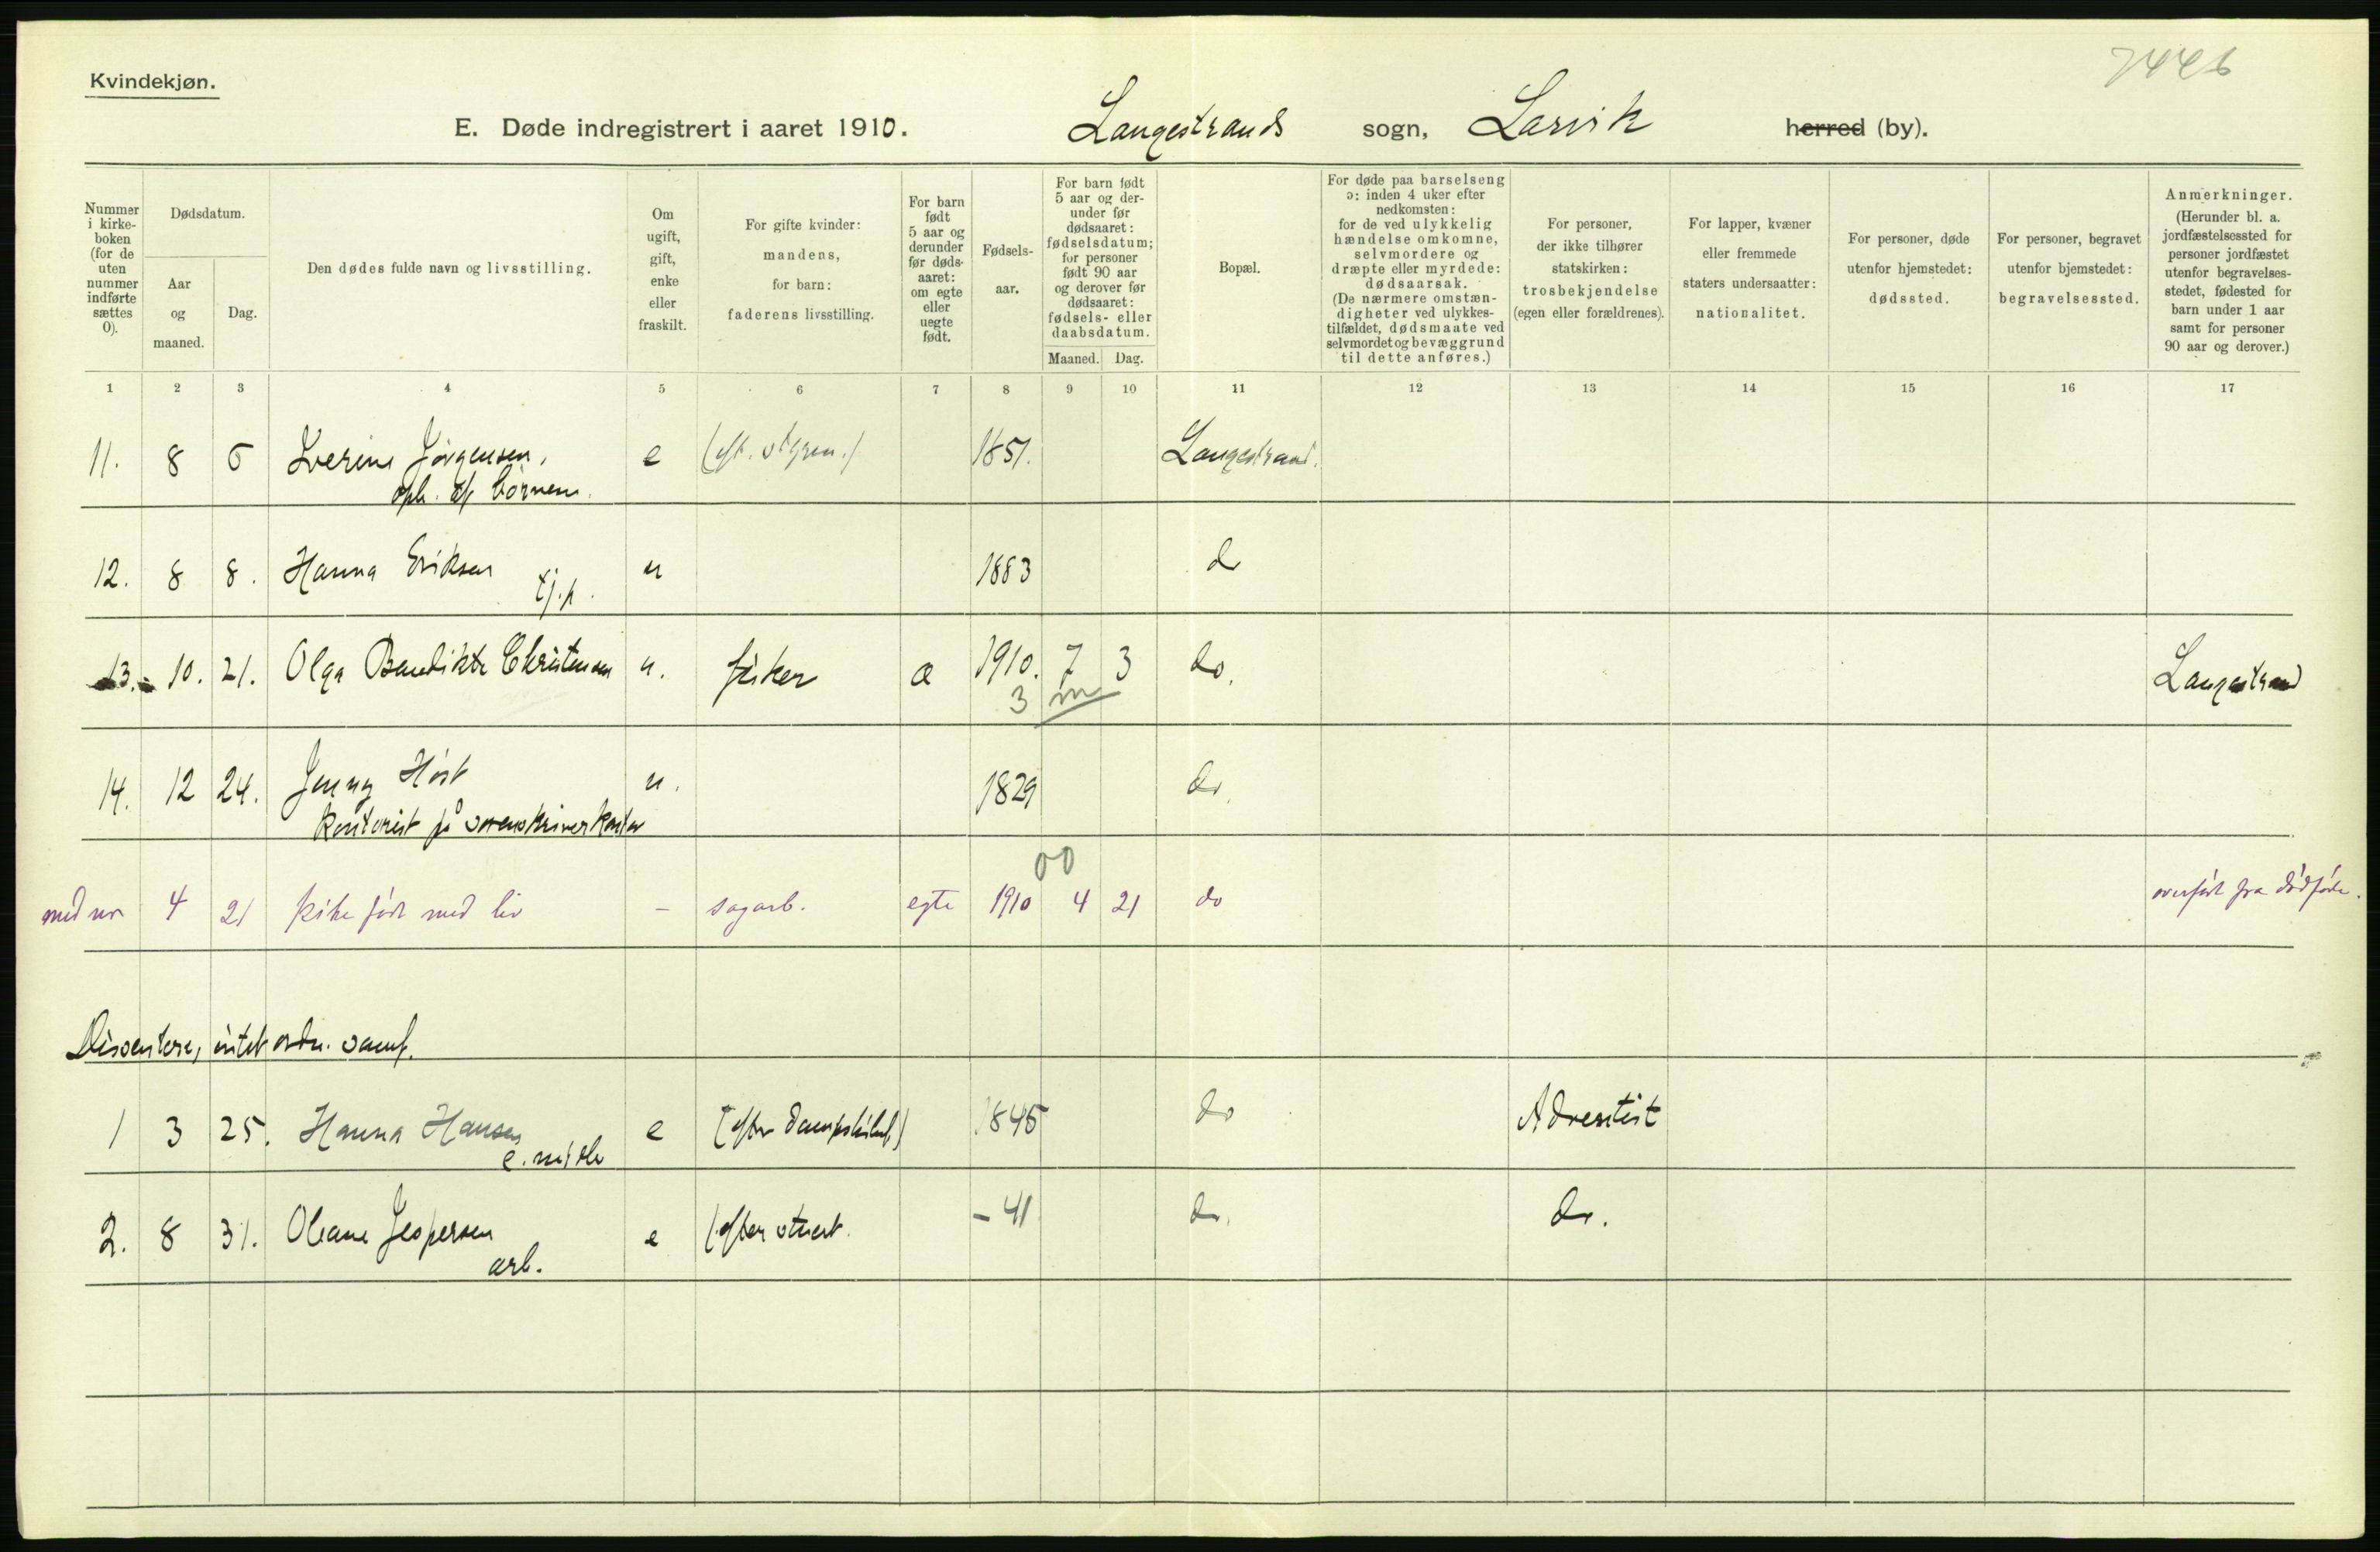 Kvindekjøn.
E. Døde indregistrert i aaret 1910. Langestrands sogn, Larvik herred (by).
Nummer i kirke-boken (for de uten nummer indførte sættes 0).
Dødsdatum.
Aar og maaned.
Dag.
Den dødes fulde navn og livsstilling.
Om ugift, gift, enke eller fraskilt.
For gifte kvinder: mandens, for barn: faderens livsstilling.
For barn født 5 aar og derunder før døds-aaret: om egte eller uegte født.
Fødsels-aar.
For barn født 5 aar og der-under før dødsaaret: fødselsdatum; for personer født 90 aar og derover før dødsaaret: fødsels- eller daabsdatum.
Maaned. Dag.
Bopæl.
For døde paa barselseng ɔ: inden 4 uker efter nedkomsten: for de ved ulykkelig hændelse omkomne, selvmordere og dræpte eller myrdede: dødsaarsak. (De nærmere omstæn-digheter ved ulykkes-tilfældet, dødsmaate ved selvmordet og bevæggrund til dette anføres.)
For personer, der ikke tilhører statskirken: trosbekjendelse (egen eller forældrenes).
For lapper, kvæner eller fremmede staters undersaatter: nationalitet.
For personer, døde utenfor hjemstedet: dødssted.
For personer, begravet utenfor bjemstedet: begravelsessted.
Anmerkninger. (Herunder bl. a. jordfæstelsessted for personer jordfæstet utenfor begravelses-stedet, fødested for barn under 1 aar samt for personer 90 aar og derover.)
1 2 3 4 5 6 7 8 9 10 11 12 13 14 15 16 17
11. 8 Jørgensen, e 1851. Langestrand.
af børnene.
12. 8 8. Hanna Eriksen u 1883 do
tj.p.
13. 10. 21. Olga Bendikte Christensen u. fisker æ 1910. 7 3 do. Langestrand
3 m
14. 12 24. Jenny Høst u. 1829 do.
kontorist på sorenskriverkontor
00
med no 4 21 pike født med liv – sagarb. egte 1910 4 21 do overført fra dødføde.
Dissentere, intet ordn. samf.
1 3 25. Hanna Hansen e (efter dampskibsf.) 1845 do Adventist
2. 8 31. Oleane Jespersen e (efter stuert. – 41 do. do.
arb.